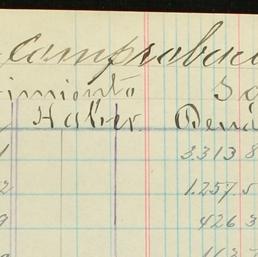 Comprobaci
imiento Sa
Haber. Deud
1 3.313 8
2 1.257.5
9 426 3